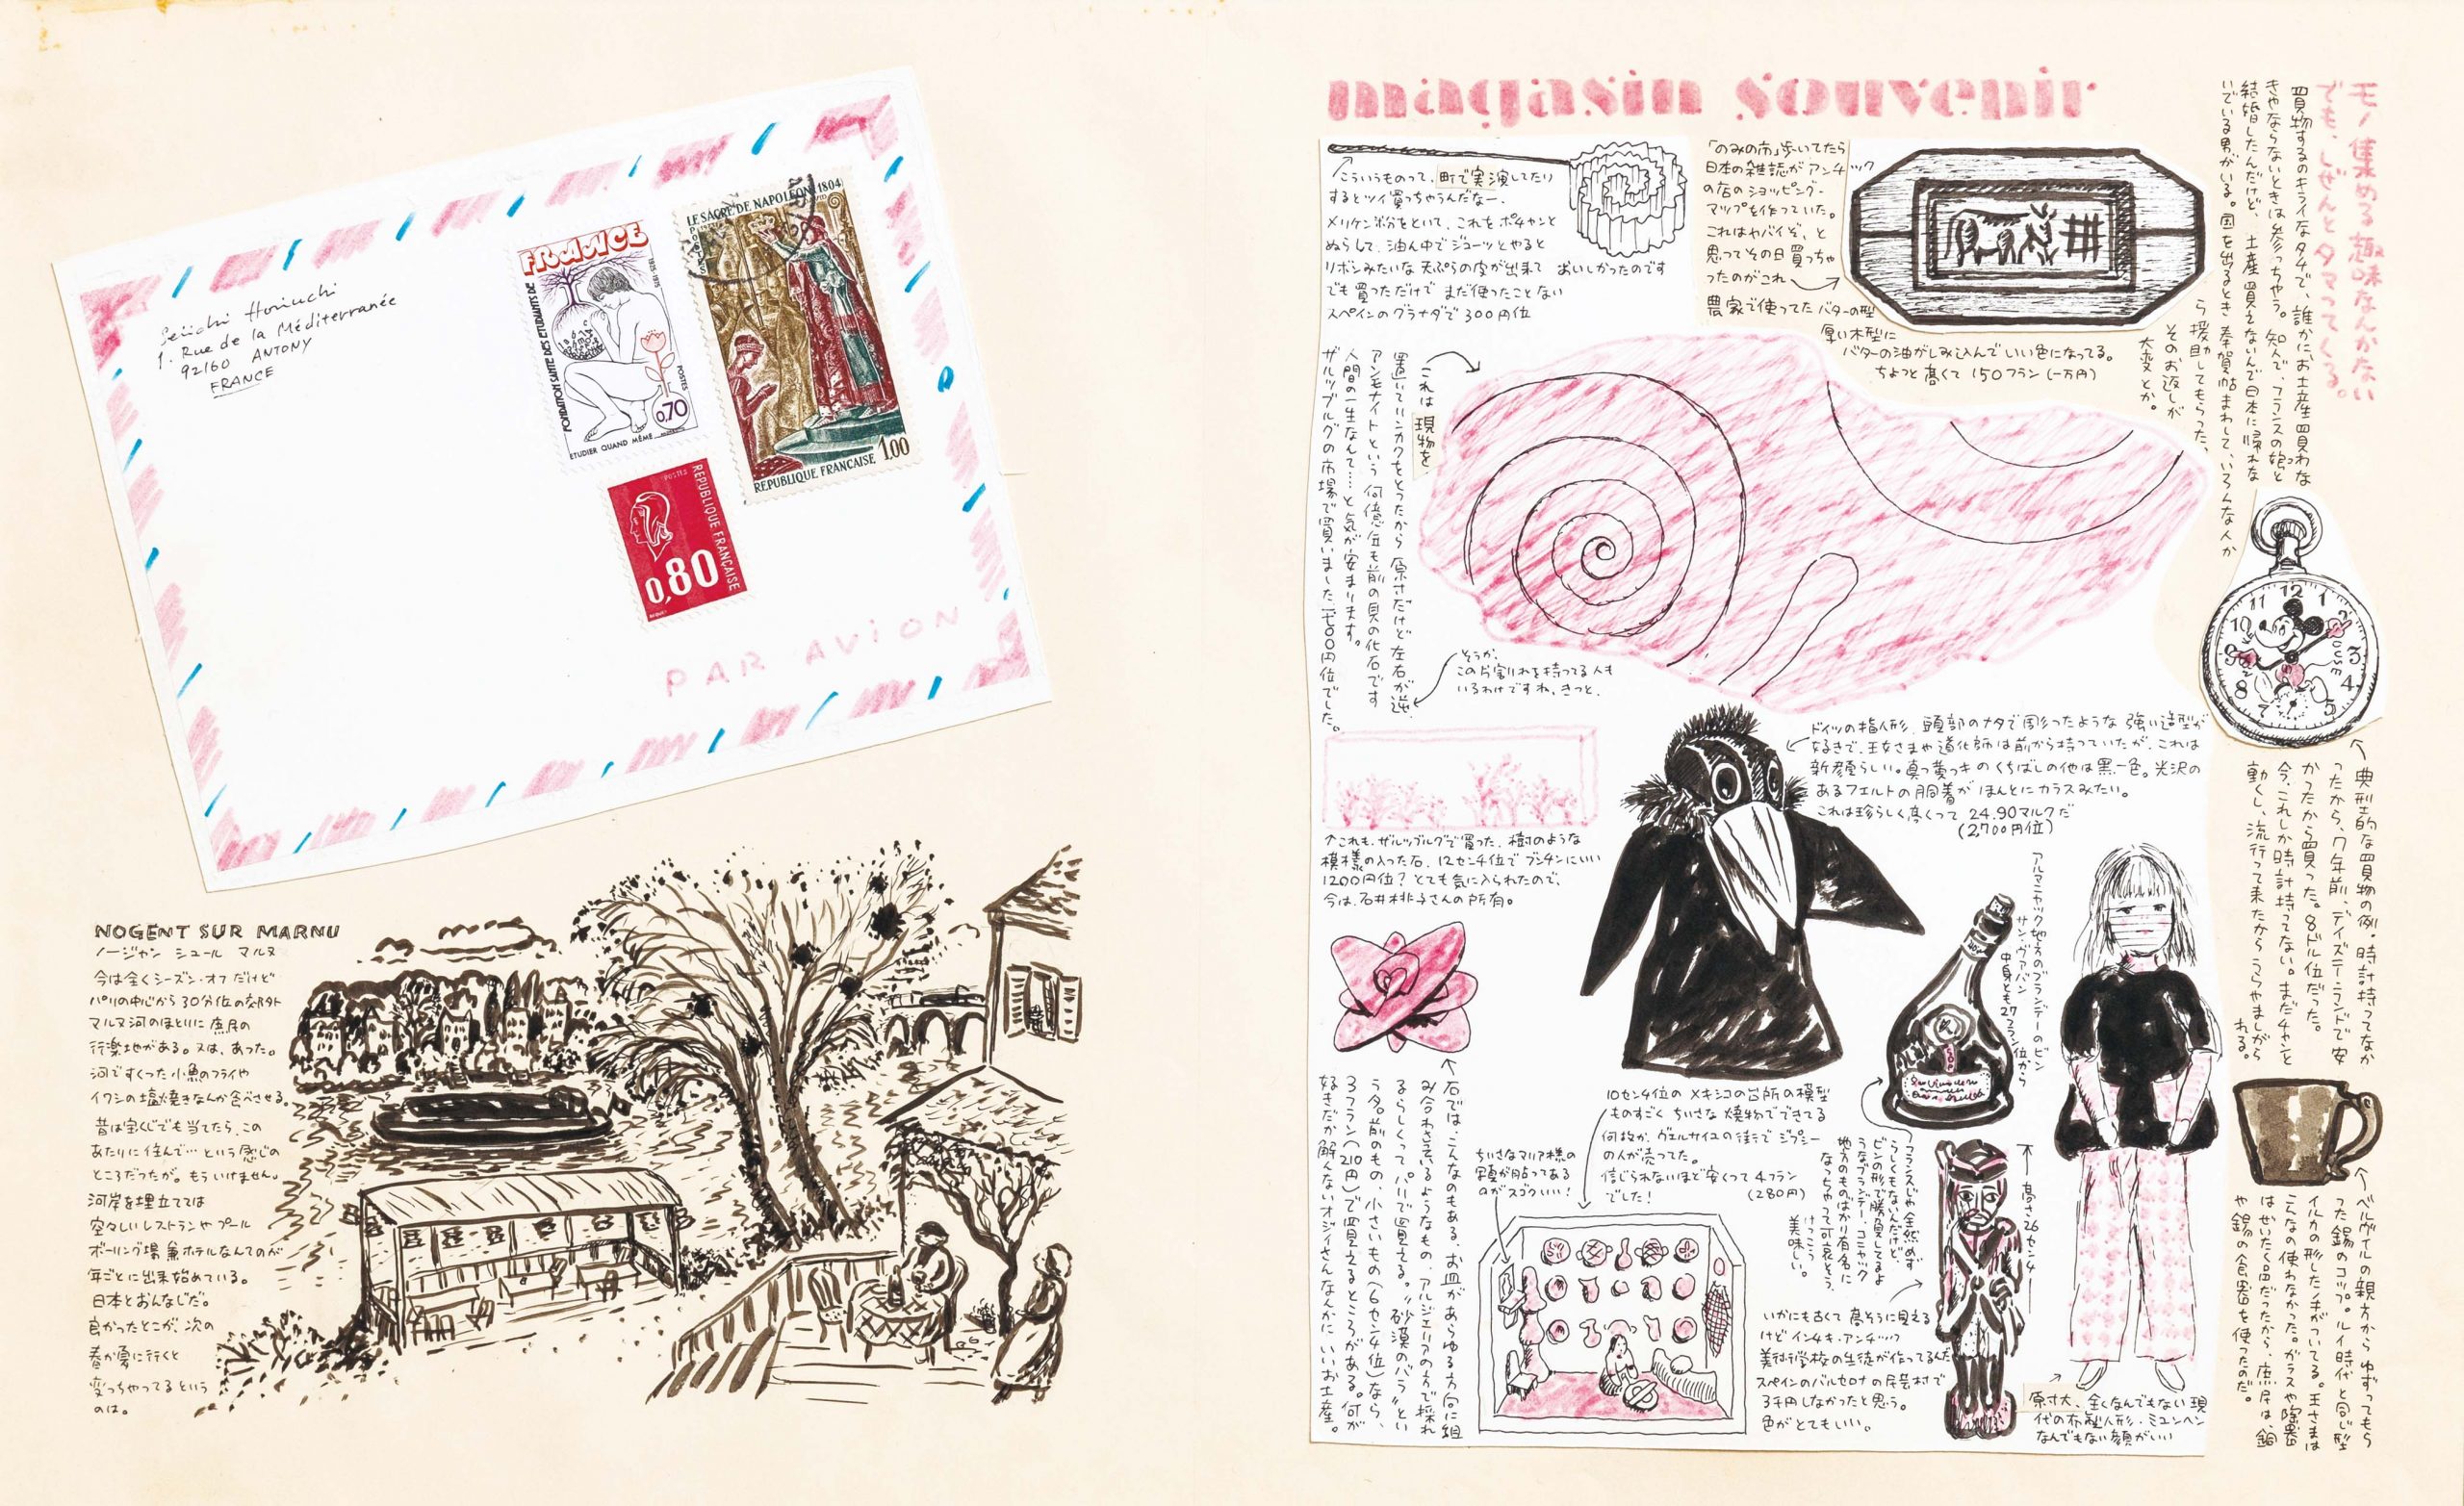 Seiichi Horiuchi
1. Rue de la Méditerranée
92160 ANTONY
FRANCE
FRANCE
FONDATION SANTÉ DES ETUDIANTS DE
1925-1975
POSTES
0,70
ETUDIER QUAND MÊME
LE SACRE DE NAPOLEON (1804)
POSTES
1,00
REPUBLIQUE FRANÇAISE
POSTES
REPUBLIQUE FRANÇAISE
0,80
PAR AVION
NOGENT SUR MARNU
ノージャン シュール マルヌ
今は全くシーズン・オフだけど
パリの中心から30分位の郊外
マルヌ河のほとりに庶民の
行楽地がある。又は、あった。
河ですくった小魚のフライや
イワシの塩焼きなんか食べさせる。
昔は宝くじでも当てたら、この
あたりに住んで…という感じの
ところだったが。もういけません。
河岸を埋立てては
空々しいレストランやプール
ボーリング場兼ホテルなんてのが
年ごとに出来始めている。
日本とおんなじだ。
良かったとこが、次の
春か夏に行くと
変っちゃってるという
のは。
magasin souvenir
モノ集める趣味なんかない
でも、しぜんとタマってくる。
買物するのキライなタチで、誰かにお土産買わな
きゃならないときは参っちゃう。知人で、フランスの娘と
結婚したんだけど、土産買えないんで日本に帰れな
いでいる男がいる。国を出るとき奉賀帖まわして、いろんな人か
ら援助してもらった、
そのお返しが
大変とか。
こういうものって、町で実演してたり
するとツイ買っちゃうんだなー。
メリケン粉をといて、これをポチャンと
ぬらして、油ん中でジューッとやると
リボンみたいな天ぷらの皮が出来て おいしかったのです
でも買っただけで まだ使ったことない
スペインのグラナダで300円位
「のみの市」歩いてたら
日本の雑誌がアンチック
の店のショッピング・
マップを作っていた。
これはヤバイぞ、と
思ってその日買っちゃ
ったのがこれ
農家で使ってたバターの型
厚い木型に
バターの油がしみ込んでいい色になってる。
ちょっと高くて150フラン(一万円)
これは現物を
置いてリンカクをとったから原寸だけど左右が逆。
アンモナイトという何億年も前の貝の化石です
人間の一生なんて……と気が安まります。
ザルツブルグの市場で買いました
そうか、
この片割れを持ってる人も
いるわけですね、きっと。
↑これも、ザルツブルグで買った、樹のような
模様の入った石。12センチ位でブンチンにいい
1200円位？とても気に入られたので、
今は、石井桃子さんの所有。
ドイツの指人形、頭部のナタで彫ったような強い造型が
なるきで、王女さまや道化師は前から持っていたが、これは
新顔らしい。真っ黄っキのくちばしの他は黒一色。光沢の
あるフェルトの胴着がほんとにカラスみたい。
これは珍らしく高くって 24.90マルクだ
(2,700円位)
典型的な買物の例。時計持ってなか
ったから、7年前、ディズニーランドで安
かったから買った。8ドル位だった。
今、これしか時計持ってない。まだチャンと
動くし、流行って来たからうらやましがら
れる。
石では、こんなのもある、お皿があらゆる方向に組
み合わさっているようなもの、アルジェリアの方で採れ
るらしくって、パリで買える。"砂漠のバラ"とい
う名前のもの、小さいもの(6センチ位)なら、
3フラン(210円)で買えるところがある。何が
好きだか解んないオジイさんなんかにいいお土産。
10センチ位のメキシコの台所の模型
ものすごくちいさな焼物でできてる
何故か、ヴェルサイユの街でジプシー
の人が売ってた。
信じられないほど安くって4フラン
でした！(280円)
ちいさなマリア様の
額が貼ってある
のがスゴクいい！
アルマニャック地方のブランデーのビン
サン・ヴァバン
中身とも27フラン位から
フランスじゃ全然めず
らしくもないんだけど、
ビンの形で勝負してるよ
うなブランデー、コニャック
地方のものばかり有名に
なっちゃって可哀そう、
けっこう
美味しい。
高さ26センチ
いかにも古くて高そうに見える
けどインチキ・アンチック
美術学校の生徒が作ってるんだ
スペインのバルセロナの民芸村で
3千円しなかったと思う。
色がとてもいい。
原寸大、全くなんでもない現
代の布製人形・ミュンヘン
なんでもない顔がいい
ベルヴィルの親方からゆずってもら
った錫のコップ。ルイ時代と同じ型
イルカの形したノキがついてる。王さまは
こんなの使わなかった。ガラスや陶器
はぜいたく品だったから、庶民は、銅
や錫の食器を使ったのだ。